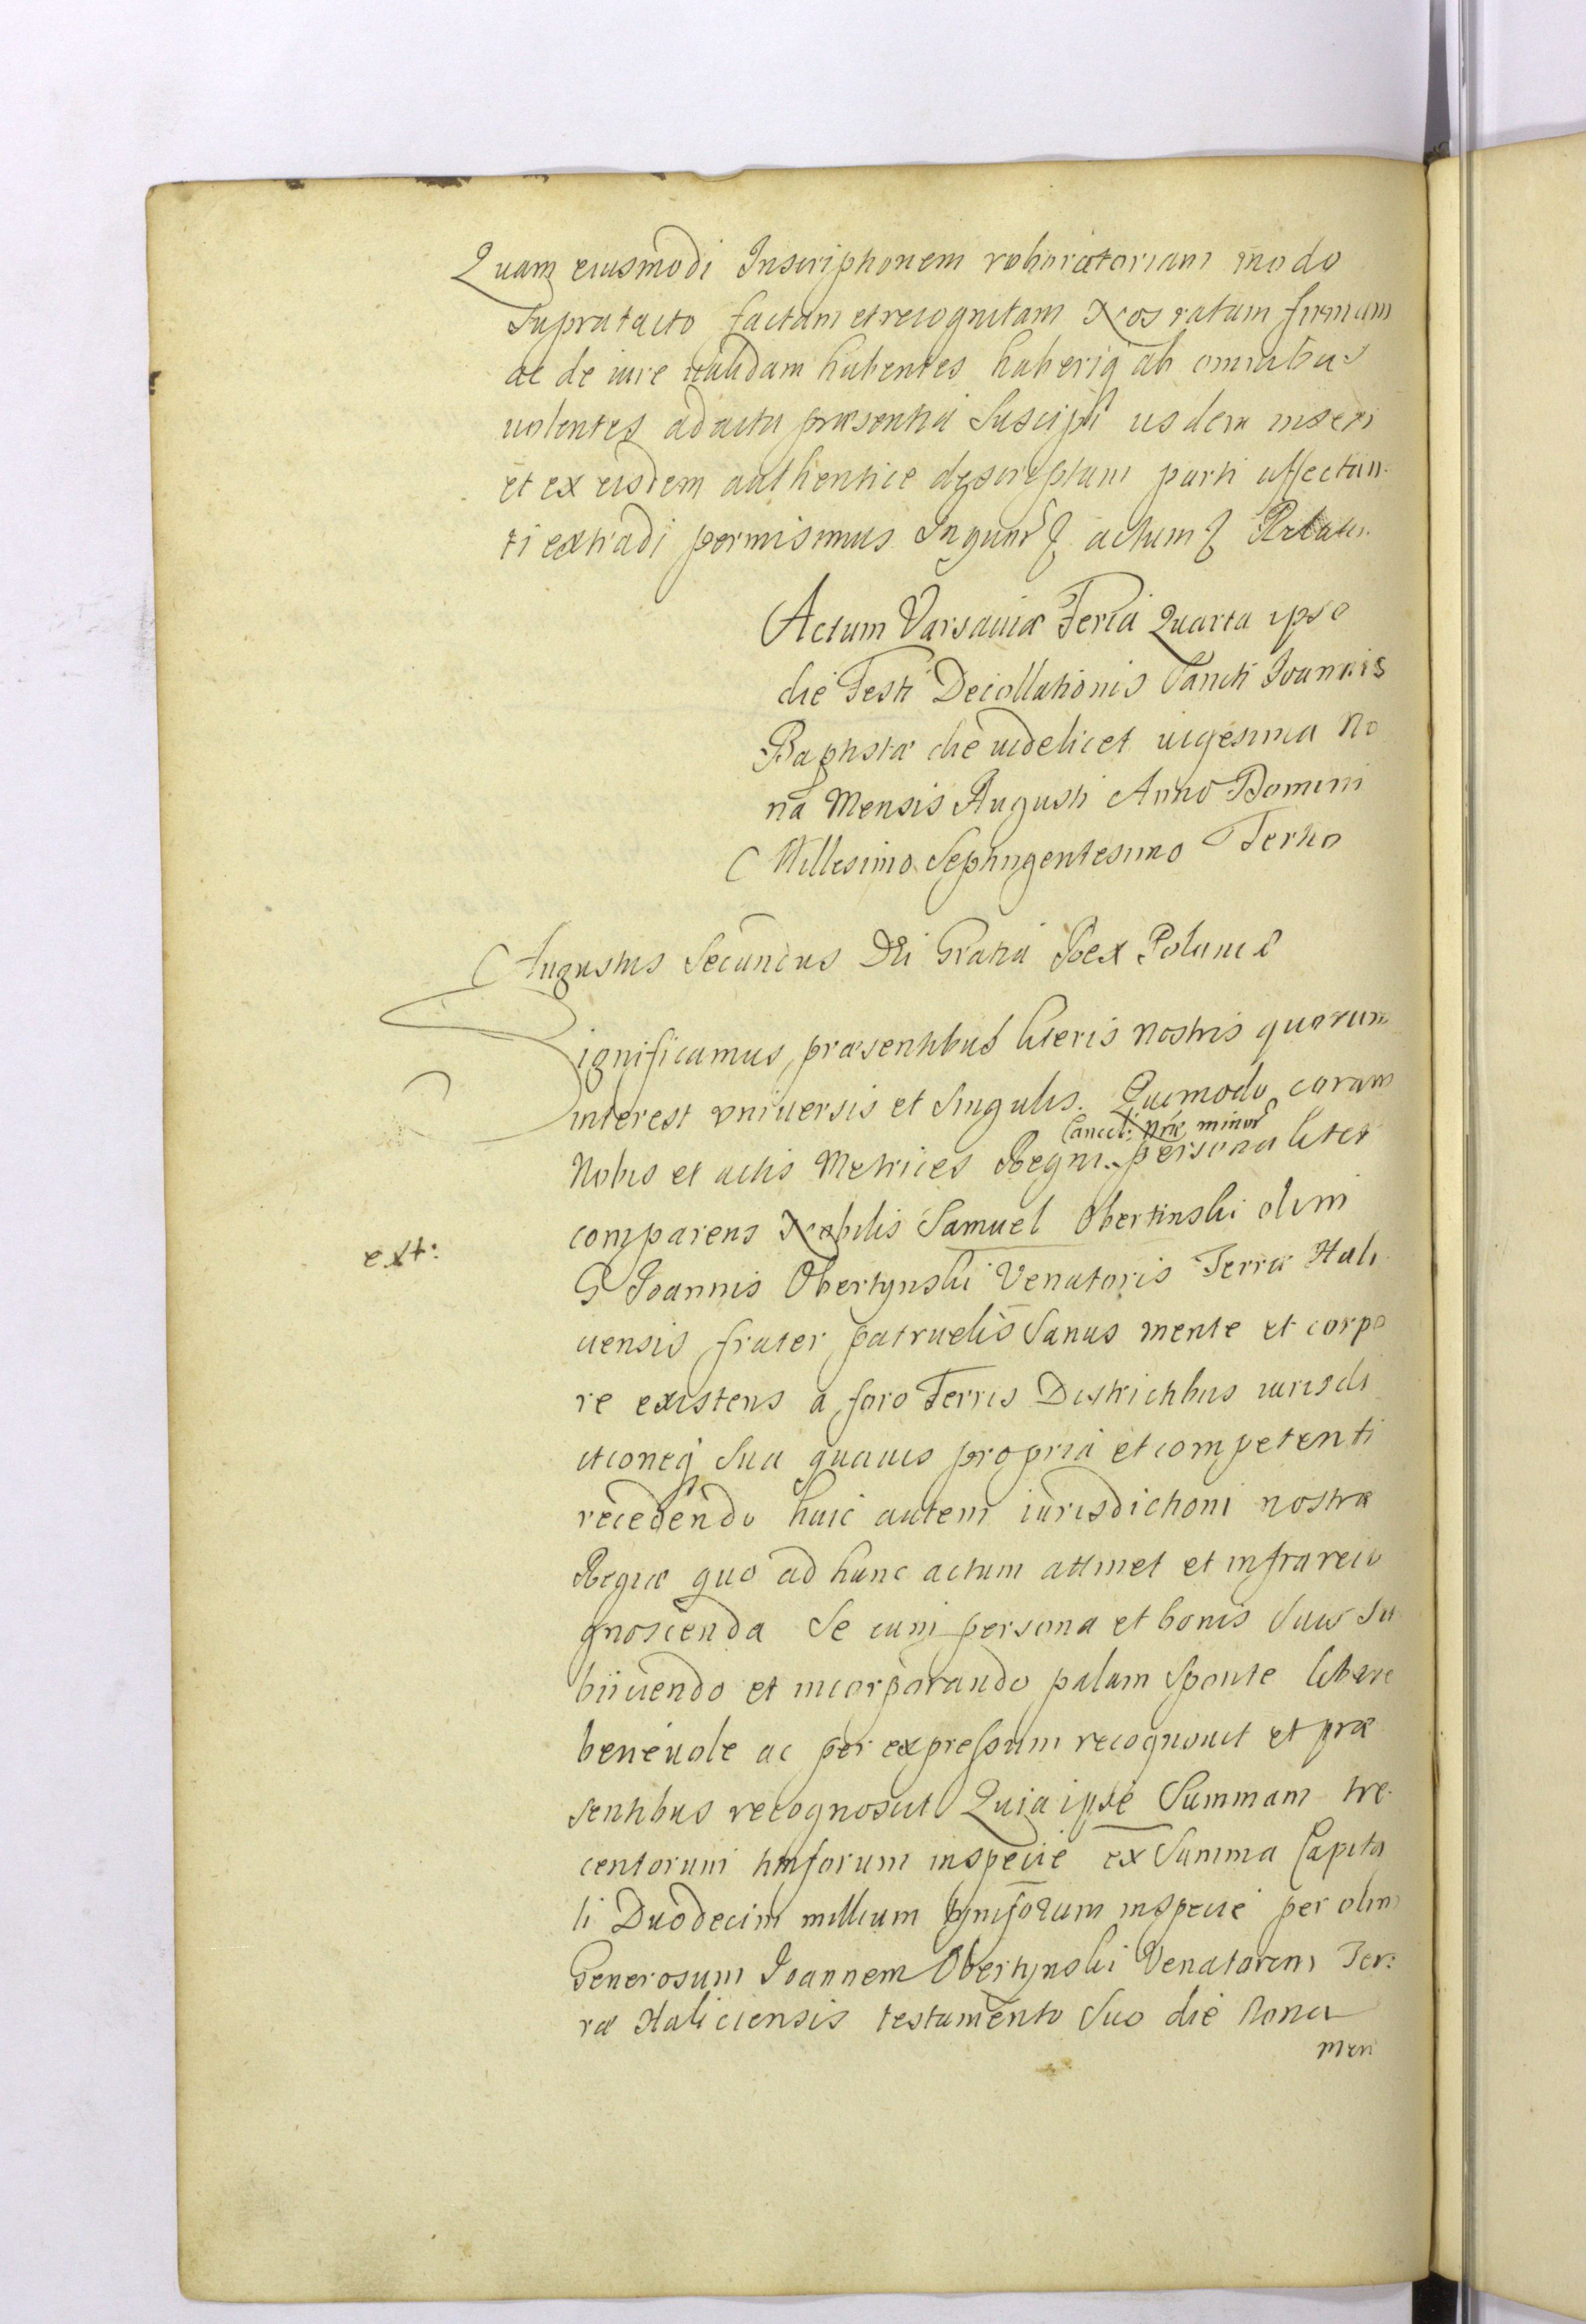 Quam eiusmodi Inscriptionem roboratoriam modo
supratacto factam et recognitam Nos ratam firmam
ac de iure validam habentes haberiq ab omnibus
volentes ad acta præsentia suscipi iisdem inseri
et ex eisdem authentice descriptum parti affectan-
ti extradi permisimus In quor actum
Actum Varsaviæ Feria Quarta ipso
die Festi Decollationis Sancti Joannis
Baptistæ die videlicet vigesima No
na Mensis Augusti Anno Domini
Millesimo Septingentesimo Tertio
Augustus Secundus Dei Gratia Rex Poloniæ
Significamus præsentibus literis nostris quorum
interest vniuersis et singulis. Quomodo coram
Cancel: Nræ minor
Nobis et actis Metrices Regni personaliter
comparens Nobilis Samuel Obertinski olim
G Joannis Obertynski Venatoris Terræ Hali
ciensis frater patruelis Sanus mente et corpo
re existens a foro Terris Districtibus iurisdi
ctioneq sua quavis propria et competenti
recedendo huic autem iurisdictioni nostræ
Regiæ quo ad hunc actum attinet et infrareco
gnoscenda se cum persona et bonis suis su
biiciendo et incorporando palam sponte libere
benevole ac per expressum recognovit et præ
sentibus recognoscit Quia ipse Summam tre-
centorum tynforum in specie ex Summa Capita
li Duodecim millium tyniforum in specie per olim
Generosum Joannem Obertynski Venatorem Ter:
ræ Haliciensis testamento suo die Nona
men
ext: